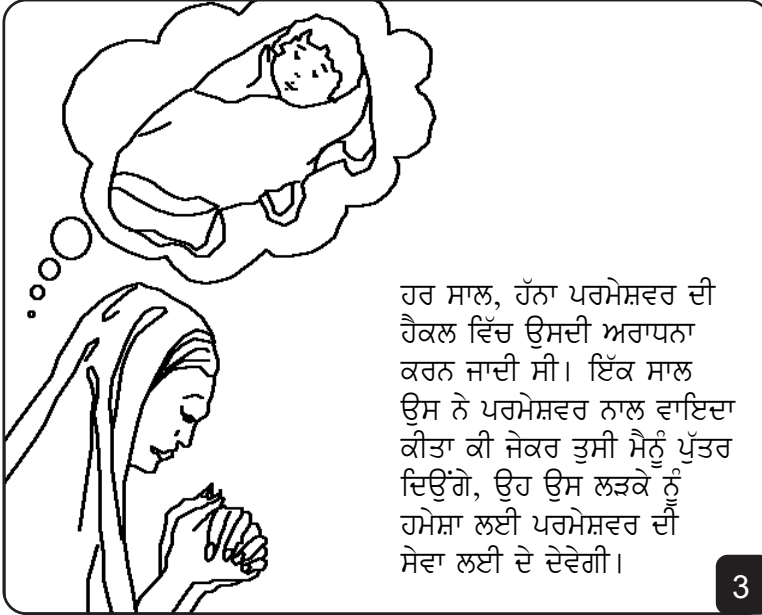 ਹਰ ਸਾਲ, ਹੱਨਾ ਪਰਮੇਸ਼ਵਰ ਦੀ
ਹੈਕਲ ਵਿੱਚ ਉਸਦੀ ਅਰਾਧਨਾ
ਕਰਨ ਜਾਦੀ ਸੀ। ਇੱਕ ਸਾਲ
ਉਸ ਨੇ ਪਰਮੇਸ਼ਵਰ ਨਾਲ ਵਾਇਦਾ
ਕੀਤਾ ਕੀ ਜੇਕਰ ਤੁਸੀ ਮੈਨੂੰ ਪੁੱਤਰ
ਦਿਉਂਗੇ, ਉਹ ਉਸ ਲੜਕੇ ਨੂੰ
ਹਮੇਸ਼ਾ ਲਈ ਪਰਮੇਸ਼ਵਰ ਦੀ
ਸੇਵਾ ਲਈ ਦੇ ਦੇਵੇਗੀ।
3